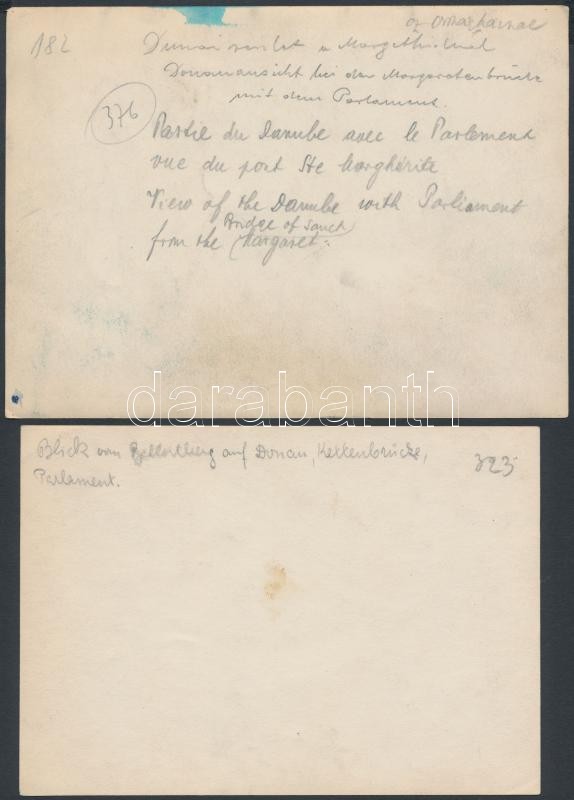 az országházzal
182
Dunai részlet a Margithidnál
Donauansicht bei der Margaretenbrücke
mit dem Parlament.
376
Partie du Danube avec le Parlement
vue du pont Ste Marghérite
View of the Danube with Parliament
Bridge of Sanct
from the Margaret.
darabanth
Blick vom Gellertberg auf Donau, Kettenbrücke,
Parlament.
323